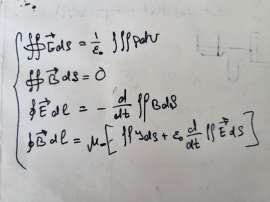 ∯ E⃗ ds = 1/ε₀ ∭ ρdv
∯ B⃗ ds = 0
∮ E⃗ dl = - d/dt ∬ B ds
∮ B⃗ dl = μ₀ [ ∬ J ds + ε₀ d/dt ∬ E⃗ ds ]